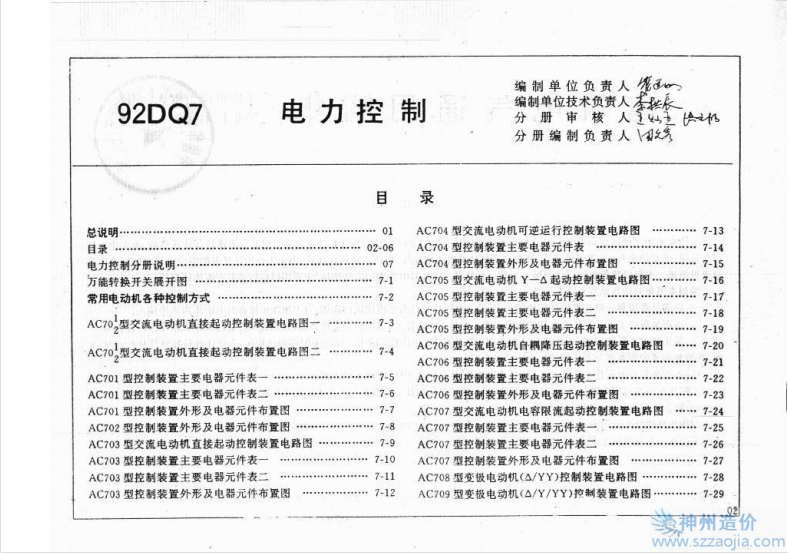 92DQ7
电力控制
编制单位负责人
编制单位技术负责人
分册审核人
分册编制负责人
目 录
总说明 01
目录 02-06
电力控制分册说明 07
万能转换开关展开图 7-1
常用电动机各种控制方式 7-2
AC70 1/2 型交流电动机直接起动控制装置电路图一 7-3
AC70 1/2 型交流电动机直接起动控制装置电路图二 7-4
AC701 型控制装置主要电器元件表一 7-5
AC701 型控制装置主要电器元件表二 7-6
AC701 型控制装置外形及电器元件布置图 7-7
AC702 型控制装置外形及电器元件布置图 7-8
AC703 型交流电动机直接起动控制装置电路图 7-9
AC703 型控制装置主要电器元件表一 7-10
AC703 型控制装置主要电器元件表二 7-11
AC703 型控制装置外形及电器元件布置图 7-12
AC704 型交流电动机可逆运行控制装置电路图 7-13
AC704 型控制装置主要电器元件表 7-14
AC704 型控制装置外形及电器元件布置图 7-15
AC705 型交流电动机 Y—△ 起动控制装置电路图 7-16
AC705 型控制装置主要电器元件表一 7-17
AC705 型控制装置主要电器元件表二 7-18
AC705 型控制装置外形及电器元件布置图 7-19
AC706 型交流电动机自耦降压起动控制装置电路图 7-20
AC706 型控制装置主要电器元件表一 7-21
AC706 型控制装置主要电器元件表二 7-22
AC706 型控制装置外形及电器元件布置图 7-23
AC707 型交流电动机电容限流起动控制装置电路图 7-24
AC707 型控制装置主要电器元件表一 7-25
AC707 型控制装置主要电器元件表二 7-26
AC707 型控制装置外形及电器元件布置图 7-27
AC708 型变级电动机(△/YY)控制装置电路图 7-28
AC709 型变极电动机(△/Y/YY)控制装置电路图 7-29
02
神州造价
www.szzaojia.com